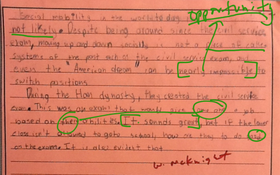 opportunity
Social mobility in the world today is
not likely. Despite being around since the civil service
exam, moving up and down socially is not a
systems of the past such as the civil service exam, and
even the "American dream" can be nearly impossible to
switch positions.
During the Han dynasty, they created the civil service
exam. This was an exam that would give
based on their abilities. It sounds great, but if the lower
class isn't allowed to go to school, how are they to do
on the exam. It is also evident that